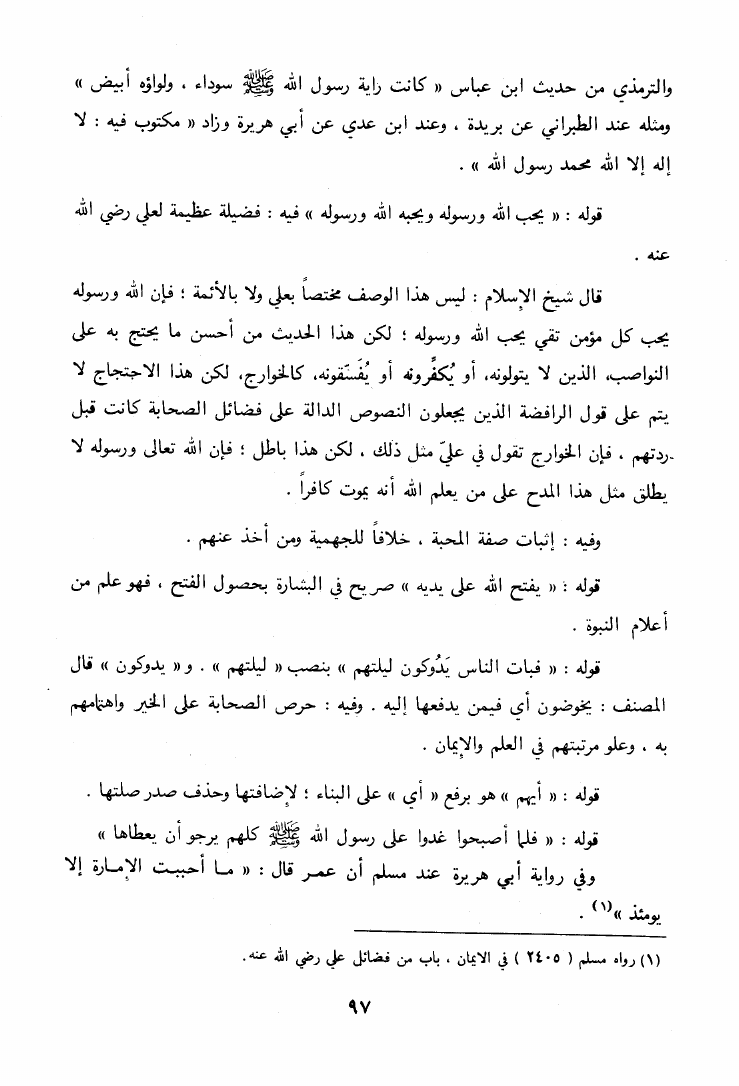 والترمذي من حديث ابن عباس « كانت راية رسول الله ﷺ سوداء ، ولواؤه أبيض »
ومثله عند الطبراني عن بريدة ، وعند ابن عدي عن أبي هريرة وزاد « مكتوب فيه : لا
إله إلا الله محمد رسول الله » .
قوله : « يحب الله ورسوله ويحبه الله ورسوله » فيه : فضيلة عظيمة لعلي رضي الله
عنه .
قال شيخ الإسلام : ليس هذا الوصف مختصاً بعلي ولا بالأئمة ؛ فإن الله ورسوله
يحب كل مؤمن تقي يحب الله ورسوله ؛ لكن هذا الحديث من أحسن ما يحتج به على
النواصب، الذين لا يتولونه، أو يُكفِّرونه أو يُفَسِّقونه، كالخوارج، لكن هذا الاحتجاج لا
يتم على قول الرافضة الذين يجعلون النصوص الدالة على فضائل الصحابة كانت قبل
ردتهم ، فإن الخوارج تقول في عليّ مثل ذلك ، لكن هذا باطل ؛ فإن الله تعالى ورسوله لا
يطلق مثل هذا المدح على من يعلم الله أنه يموت كافراً .
وفيه : إثبات صفة المحبة ، خلافاً للجهمية ومن أخذ عنهم .
قوله : « يفتح الله على يديه » صريح في البشارة بحصول الفتح ، فهو علم من
أعلام النبوة .
قوله : « فبات الناس يَدُوكون ليلتهم » بنصب « ليلتهم » . و « يدوكون » قال
المصنف : يخوضون أي فيمن يدفعها إليه . وفيه : حرص الصحابة على الخير واهتمامهم
به ، وعلو مرتبتهم في العلم والإيمان .
قوله : « أيهم » هو برفع « أي » على البناء ؛ لإضافتها وحذف صدر صلتها .
قوله : « فلما أصبحوا غدوا على رسول الله ﷺ كلهم يرجو أن يعطاها »
وفي رواية أبي هريرة عند مسلم أن عمر قال : « ما أحببت الإمارة إلا
يومئذ »(١) .
(١) رواه مسلم ( ٢٤٠٥ ) في الايمان ، باب من فضائل علي رضي الله عنه.
٩٧